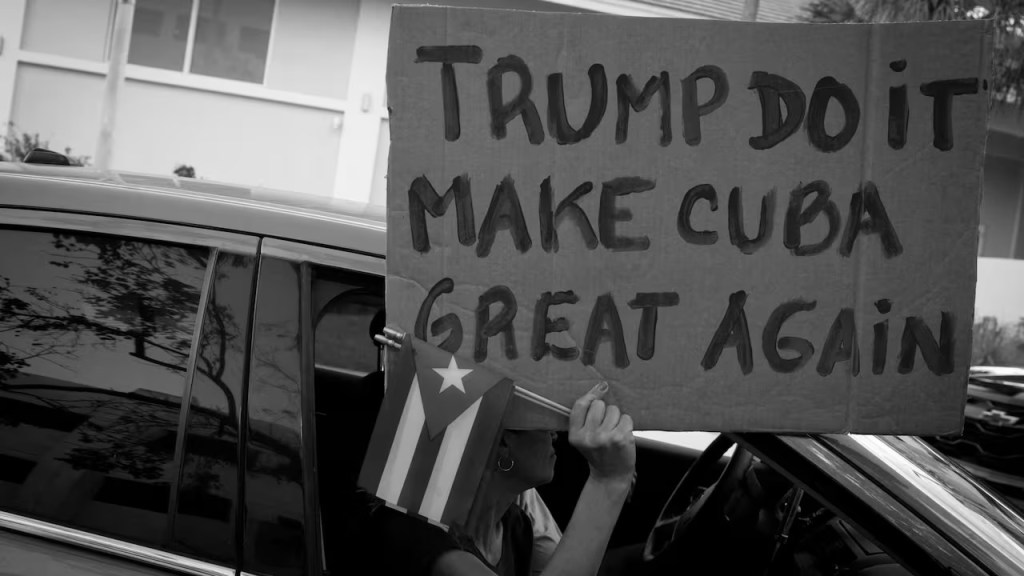 TRUMP DO iT
MAKE CUBA
GREAT AGAiN